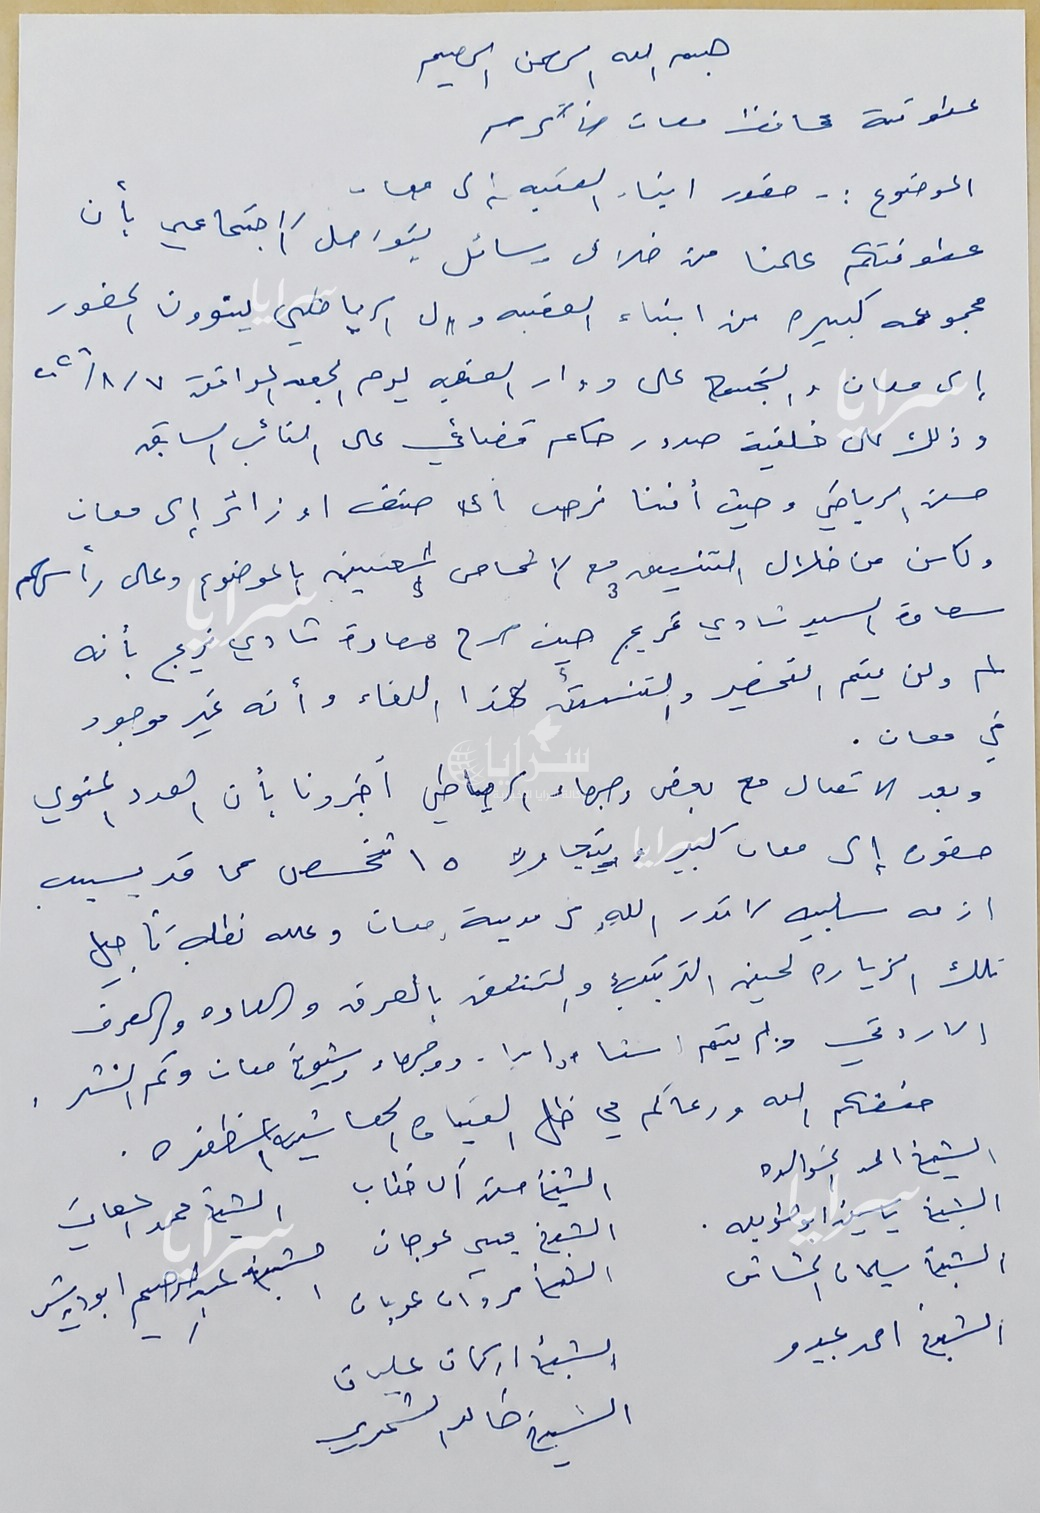 بسم الله الرحمن الرحيم
عطوفة محافظ معان الأكرم
الموضوع :- حضور ابناء العقبه إلى معان
عطوفتكم علمنا من خلال وسائل التواصل الاجتماعي بأن
مجموعه كبيره من ابناء العقبه وال الرياطي ينوون الحضور
إلى معان والتجمع على دوار العقبه يوم الجمعه الموافق ٨/٧/
وذلك على خلفية صدور حكم قضائي على النائب السابق
حسن الرياطي وحيث أننا نرحب بأي ضيف او زائر إلى معان
ولكن من خلال التنسيق مع الاشخاص المعنيين بالموضوع وعلى رأسهم
سعادة السيد شادي فريج حيث صرح سعادة شادي فريج بأنه
لم ولن يتم التحضير والتنسيق لهذا اللقاء وأنه غير موجود
في معان .
وبعد الاتصال مع بعض وجهاء الرياطي أخبرونا بأن العدد المنوي
حضوره إلى معان كبير ويتجاوز ١٥ شخص مما قد يسبب
ازمه سلبيه لا قدر الله في مدينة معان وعليه نطلب تأجيل
تلك الزياره لحين الترتيب والتنسيق بالعرف والعاده والعرف
الاردني ولم يتم ووجهاء وشيوخ معان وتم النشر .
حفظكم الله ورعاكم في ظل القياده الهاشميه المظفره .
الشيخ احمد الخوالده الشيخ حسن آل خطاب الشيخ محمد
الشيخ ياسين ابو طويله . الشيخ عوجان الشيخ عبدالرحيم ابو درويش
الشيخ سليمان الشيخ مروان
الشيخ احمد عبيدو الشيخ عليان
الشيخ خالد الشمري
سرايا
سرايا
سرايا
سرايا
سرايا
سرايا
سرايا